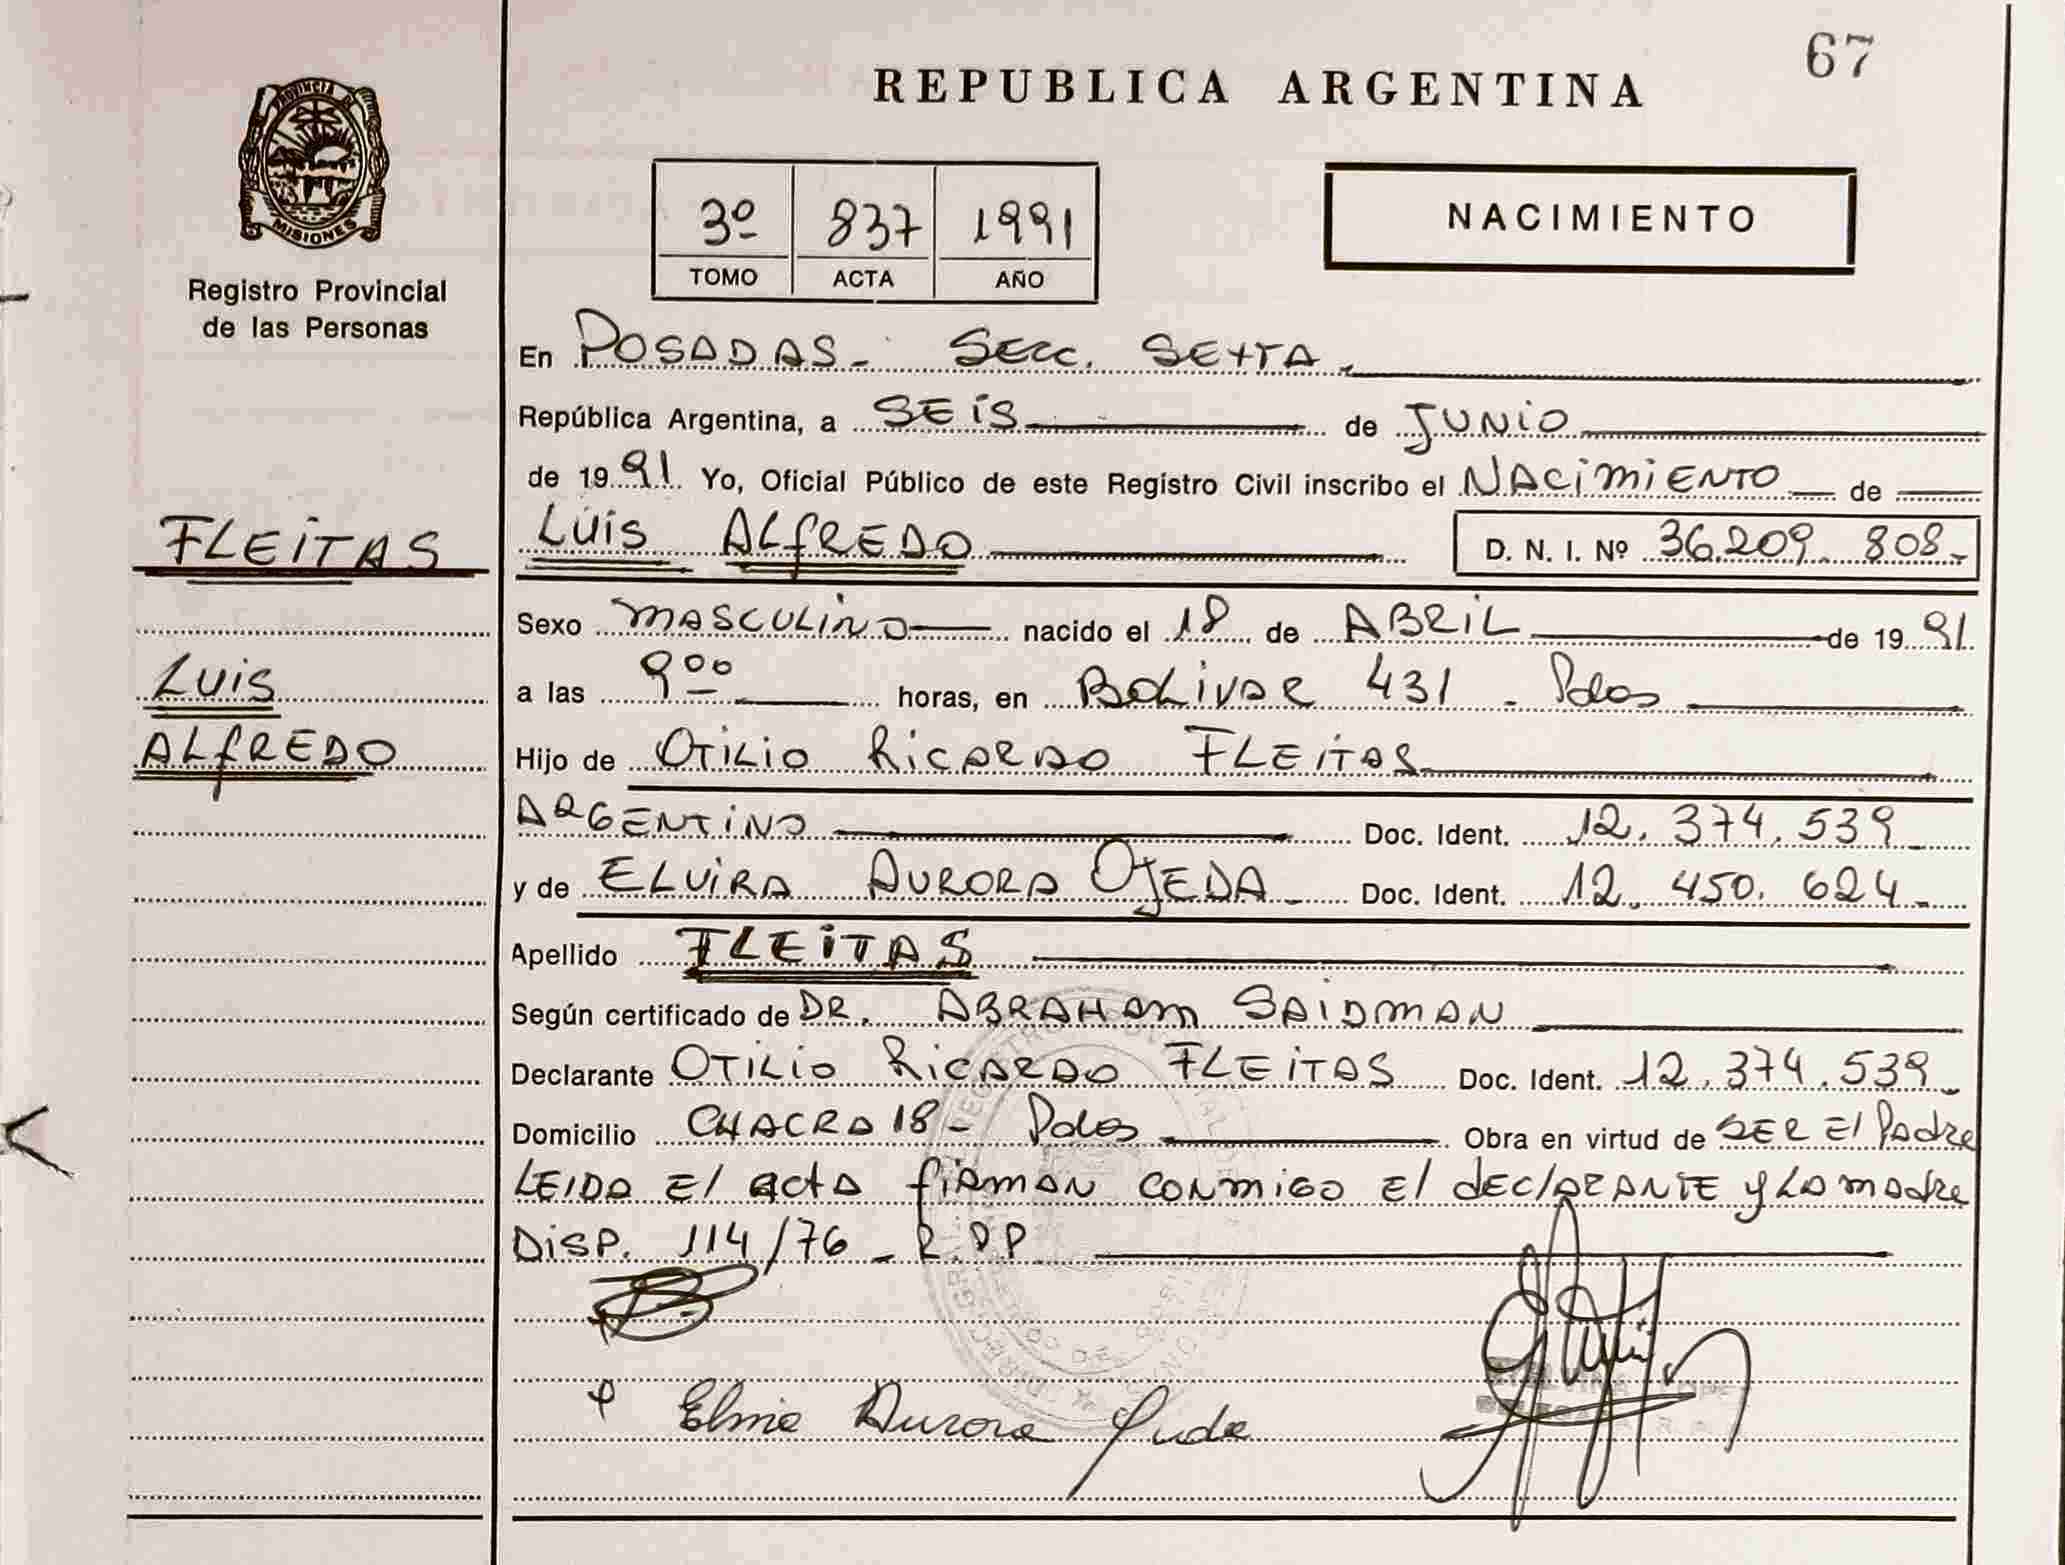 67
REPUBLICA ARGENTINA
PROVINCIA DE
MISIONES
Registro Provincial
de las Personas
3º 837 1991
TOMO ACTA AÑO
NACIMIENTO
En POSADAS - SECC. SEXTA
República Argentina, a SEIS de JUNIO
de 1991 Yo, Oficial Público de este Registro Civil inscribo el NACIMIENTO de
FLEITAS
LUIS ALFREDO D. N. I. Nº 36.209.808-
Sexo MASCULINO nacido el 18 de ABRIL de 1991
LUIS
a las 9 00 horas, en BOLIVAR 431 - Pdas
ALFREDO
Hijo de OTILIO RICARDO FLEITAS
ARGENTINO Doc. Ident. 12.374.539
y de ELVIRA AURORA OJEDA - Doc. Ident. 12.450.624-
Apellido FLEITAS
Según certificado de DR. ABRAHAM SAIDMAN
Declarante OTILIO RICARDO FLEITAS Doc. Ident. 12.374.539-
Domicilio CHACRA 18 - Pdas Obra en virtud de SER El Padre
LEIDA El acta firman conmigo El declarante y la madre
DISP. 114/76 - R.P.P